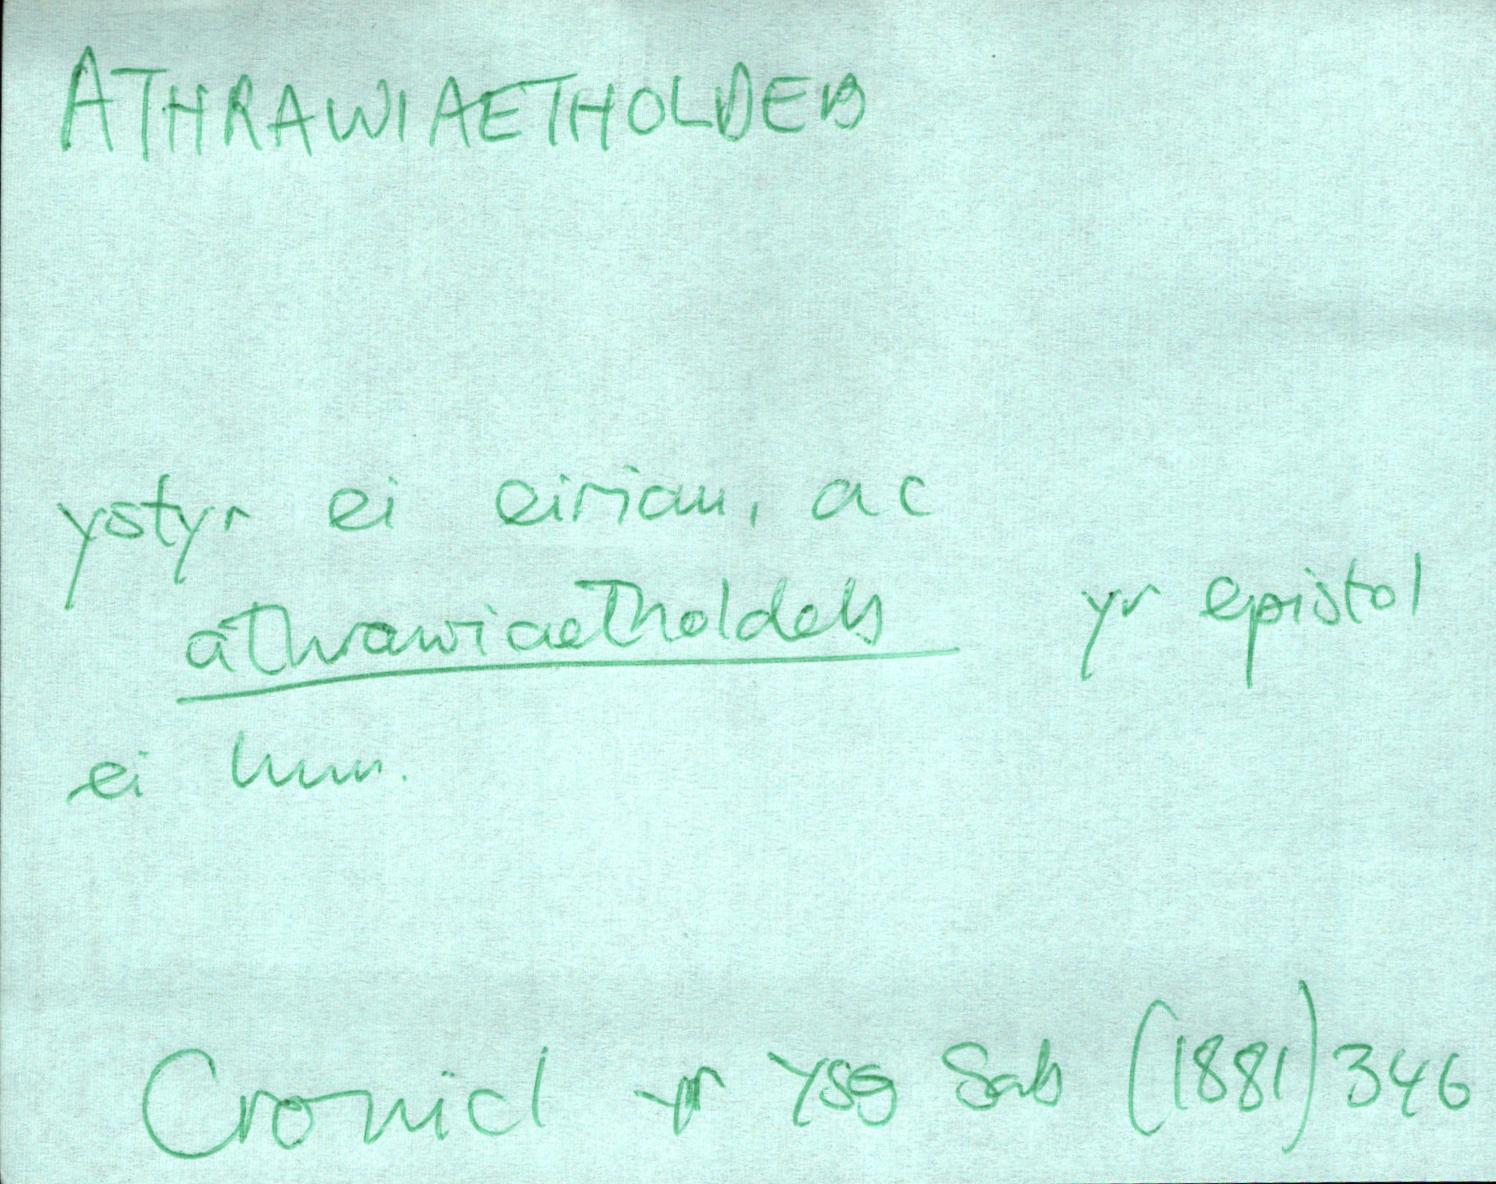 ATHRAWIAETHOLDEB
ystyr ei eiriau, ac
athrawiaetholdeb yr epistol
ei hun.
Cronicl yr Ysg Sab (1881) 346